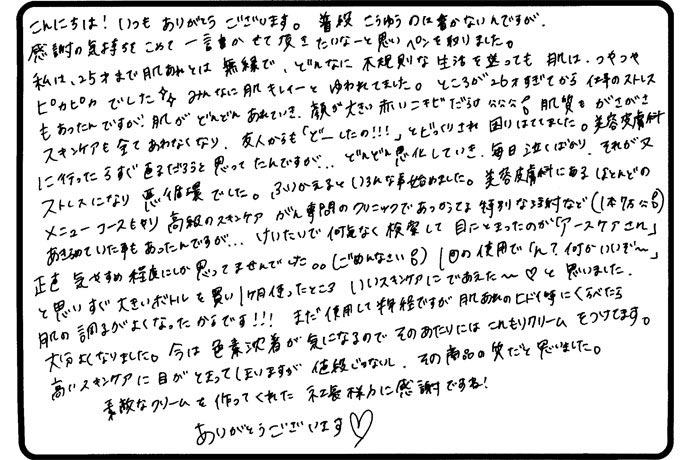 こんにちは! いつも ありがとう ございます。 普段 こうゆうのは書かないんですが、
感謝の気持ちをこめて 一言書かせて頂きたいなーと思いペンを取りました。
私は、25才まで肌あれとは 無縁で、どんなに 不規則な 生活を送っても 肌は、つやつや
ピカピカ でした みんなに肌キレイーと ゆわれてました。 ところが26才すぎてから 仕事のストレス
もあったんですが、肌が どんどん あれていき、顔が大きい赤いニキビだらけ 肌質も がさがさ
スキンケアも全てあわなくなり、友人からも「どーしたの!!!」とびっくりされ 困りはててました。美容皮膚科
に行ったらすぐ直るだろうと思ってたんですが... どんどん悪化していき、毎日泣くばかり、それが又
ストレスになり 悪循環でした。 ふりかえるといろんな事始めました。美容皮膚科にある ほとんどの
メニュー コースもやり 高級のスキンケア がん専門のクリニックであつかってる 特別な注射など (1本75
あきらめていた事もあったんですが... けいたいで何気なく検索して 目にとまったのが「アースケアさん」
正直 気やすめ程度にしか思ってませんでした。。(ごめんなさい) 1回の使用で「ん?何かいいぞ〜」
と思いすぐ大きいボトルを買い1ヶ月使ったところ いいスキンケアにであえた〜♡と思いました。
肌の調子がよくなったからです!!! まだ使用して半年ですが 肌あれのヒドイ時にくらべたら
大分よくなりました。今は色素沈着が気になるので そのあたりには これもりクリームをつけてます。
高いスキンケアに目がとまってしまいますが 値段じゃないし、その商品の質だと思いました。
素敵なクリームを作ってくれた 社長様方に感謝です!
ありがとうございます♡